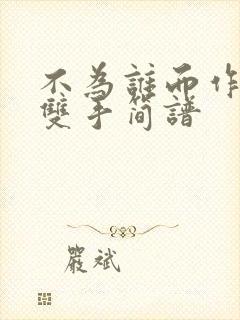 不為誰而作
雙手簡譜
嚴斌